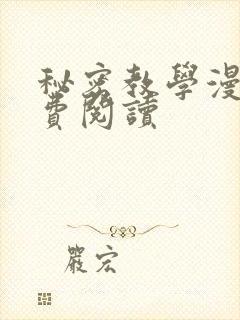 秘密教學漫
費閱讀
嚴宏